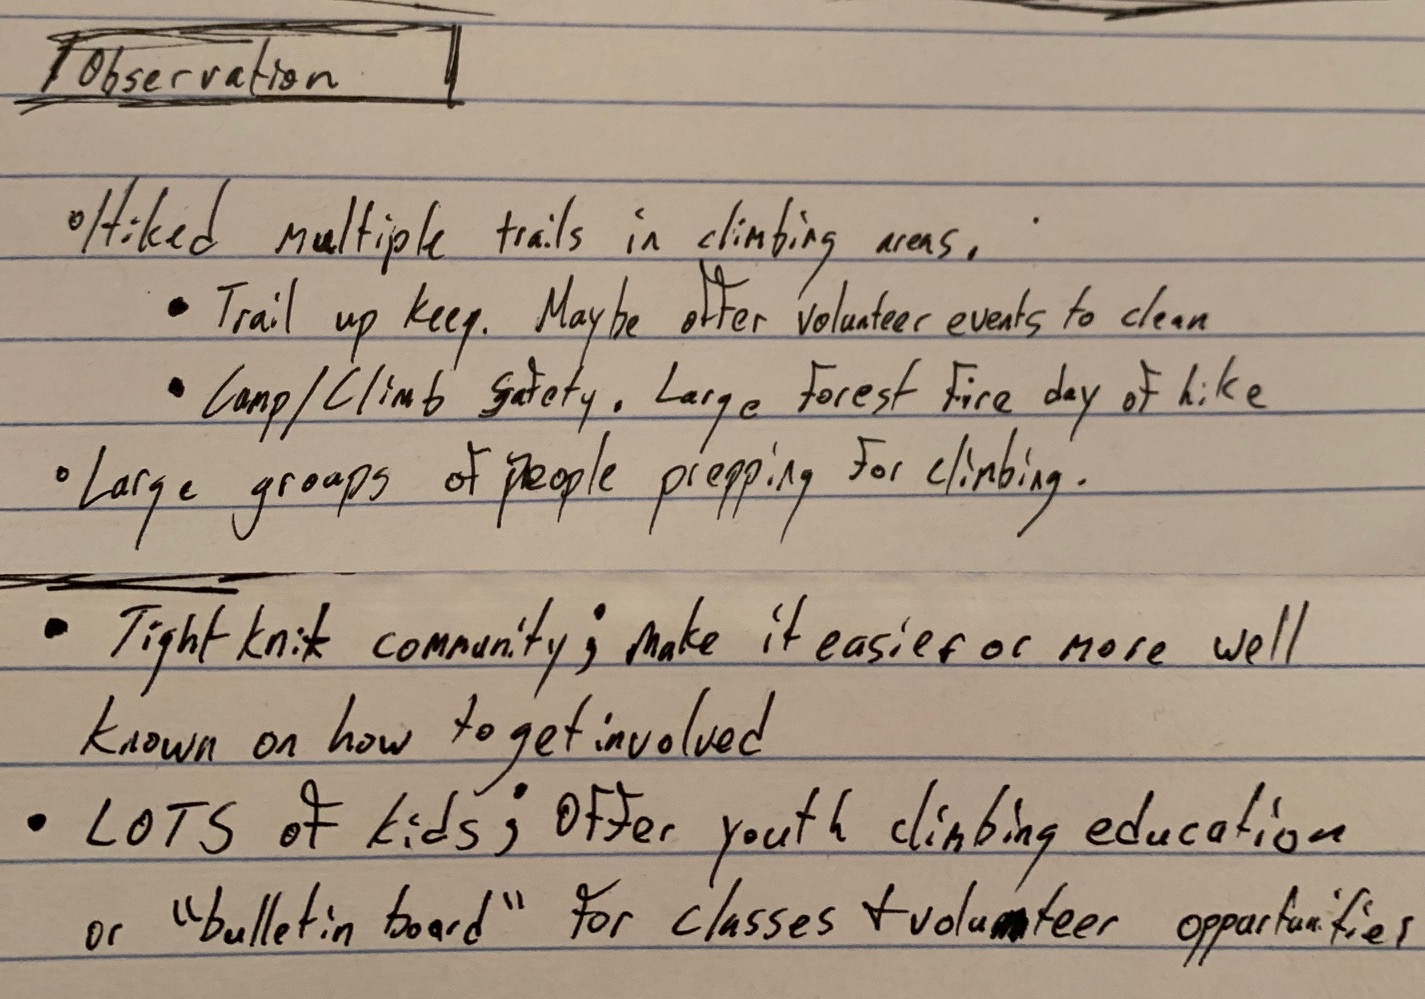 Observation
° Hiked multiple trails in climbing areas.
• Trail up keep. Maybe offer volunteer events to clean
• Camp/Climb safety. Large forest fire day of hike
° Large groups of people prepping for climbing.
• Tight knit community; make it easier or more well
known on how to get involved
• LOTS of kids; offer youth climbing education
or "bulletin board" for classes + volunteer opportunities